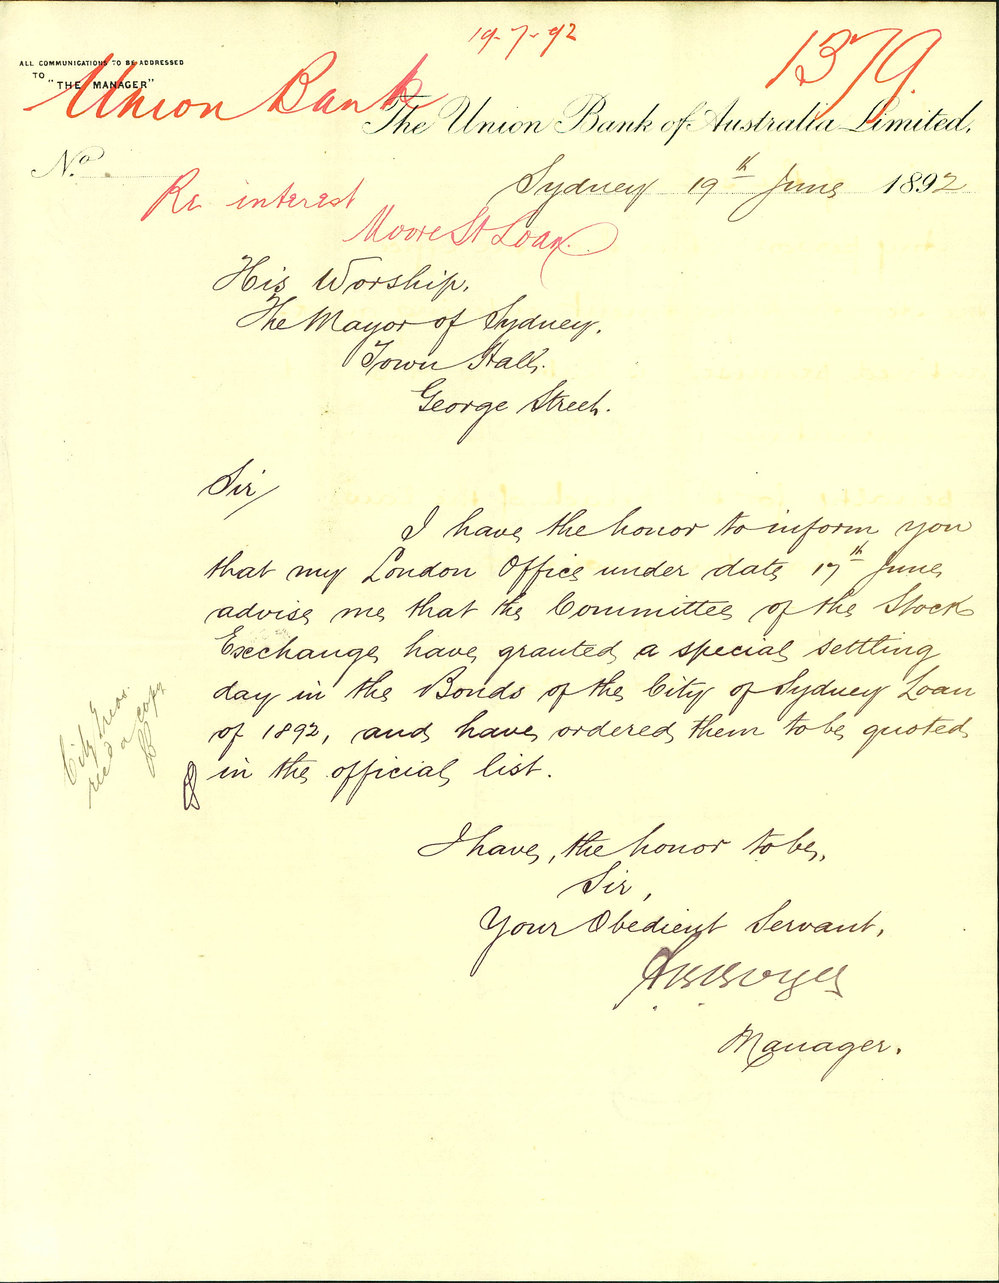 19-7-92
1379.
ALL COMMUNICATIONS TO BE ADDRESSED
TO "THE MANAGER"
Union Bank
The Union Bank of Australia Limited,
No.
Sydney 19th June 1892
Re interest
Moore St Loan.
His Worship,
The Mayor of Sydney,
Town Hall.
George Street.
Sir/
I have the honor to inform you
that my London Office under date 17th June
advise me that the Committee of the Stock
Exchange have granted a special settling
day in the Bonds of the City of Sydney Loan
of 1892, and have ordered them to be quoted
in the official list.
City Treas
recd a copy
I have, the honor to be,
Sir,
Your Obedient Servant,
Manager.